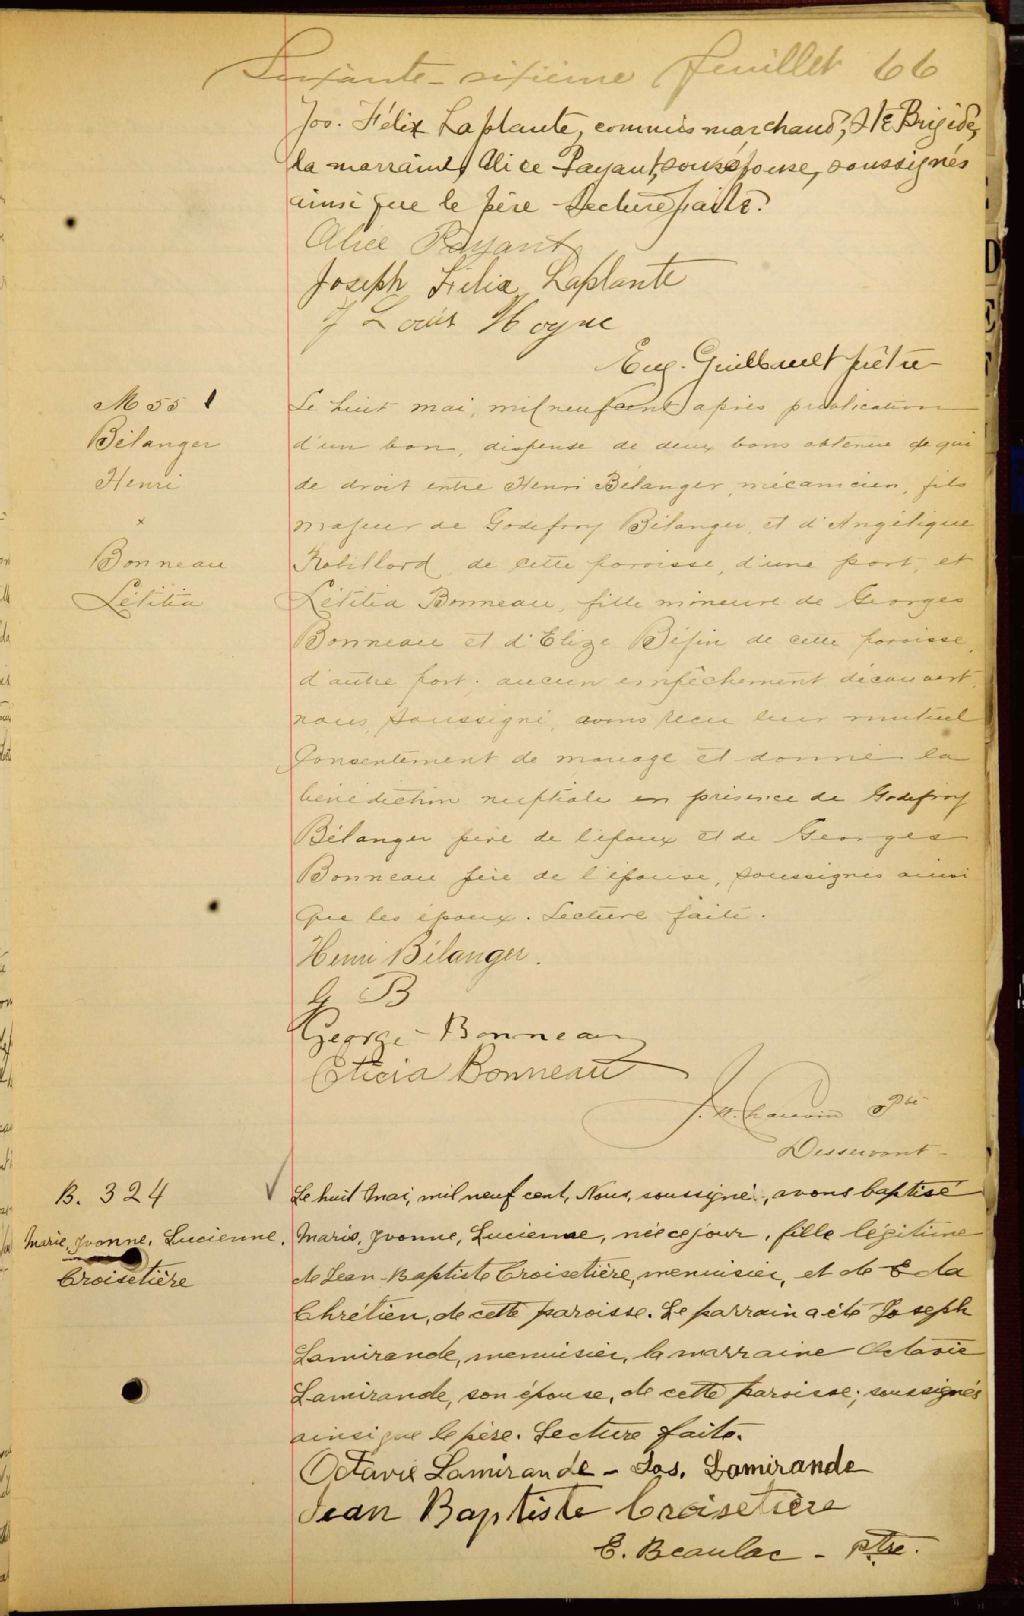 Soixante-sixième feuillet 66
Jos. Félix Laplante, commis marchand, Ste Brigide,
la marraine Alice Payant, son épouse, soussignés
ainsi que le père. Lecture faite.
Alice Payant
Joseph Félix Laplante
J Louis
Eug. Guilbault prêtre
M 55
Bélanger
Henri
x
Bonneau
Létitia
Le huit mai, mil neuf cent après publication
d'un ban, dispense de deux bans obtenue de qui
de droit entre Henri Bélanger, mécanicien, fils
majeur de Godefroy Bélanger, et d'Angélique
Robillard, de cette paroisse, d'une part, et
Létitia Bonneau, fille mineure de Georges
Bonneau et d'Elize Bépin de cette paroisse,
d'autre part; aucun empêchement découvert,
nous, soussigné, avons reçu leur mutuel
consentement de mariage et donné la
bénédiction nuptiale en présence de Godefroy
Bélanger père de l'époux et de Georges
Bonneau père de l'épouse, soussignés ainsi
que les époux. Lecture faite.
Henri Bélanger.
G B
George Bonneau
Eticia Bonneau
Ptre
Desservant
B. 324
Marie, Yvonne, Lucienne,
Croisetière
Le huit Mai, mil neuf cent, Nous, soussigné, avons baptisé
Marie, Yvonne, Lucienne, née ce jour, fille légitime
de Jean-Baptiste Croisetière, menuisier, et de Eda
Chrétien, de cette paroisse. Le parrain a été Joseph
Lamirande, menuisier, la marraine Octavie
Lamirande, son épouse, de cette paroisse; soussignés
ainsi que le père. Lecture faite.
Octavie Lamirande - Jos. Lamirande
Jean Baptiste Croisetière
E. Beaulac - ptre.